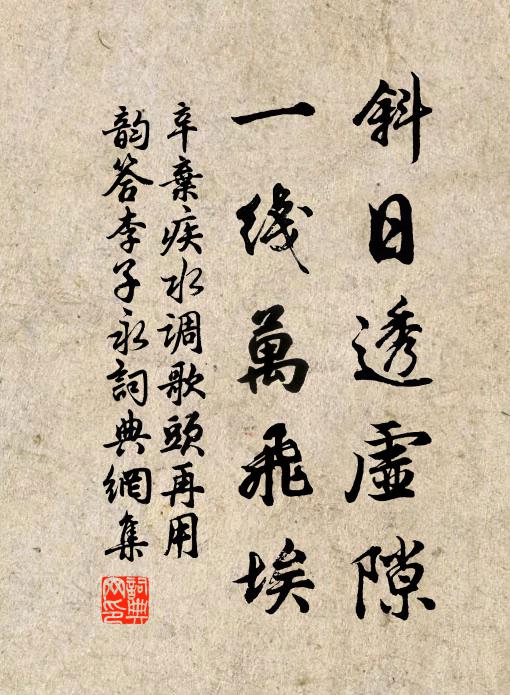 斜日透虛隙
一线萬飛埃
辛棄疾水调歌頭再用
韵答李子永詞典網集
詞典网印